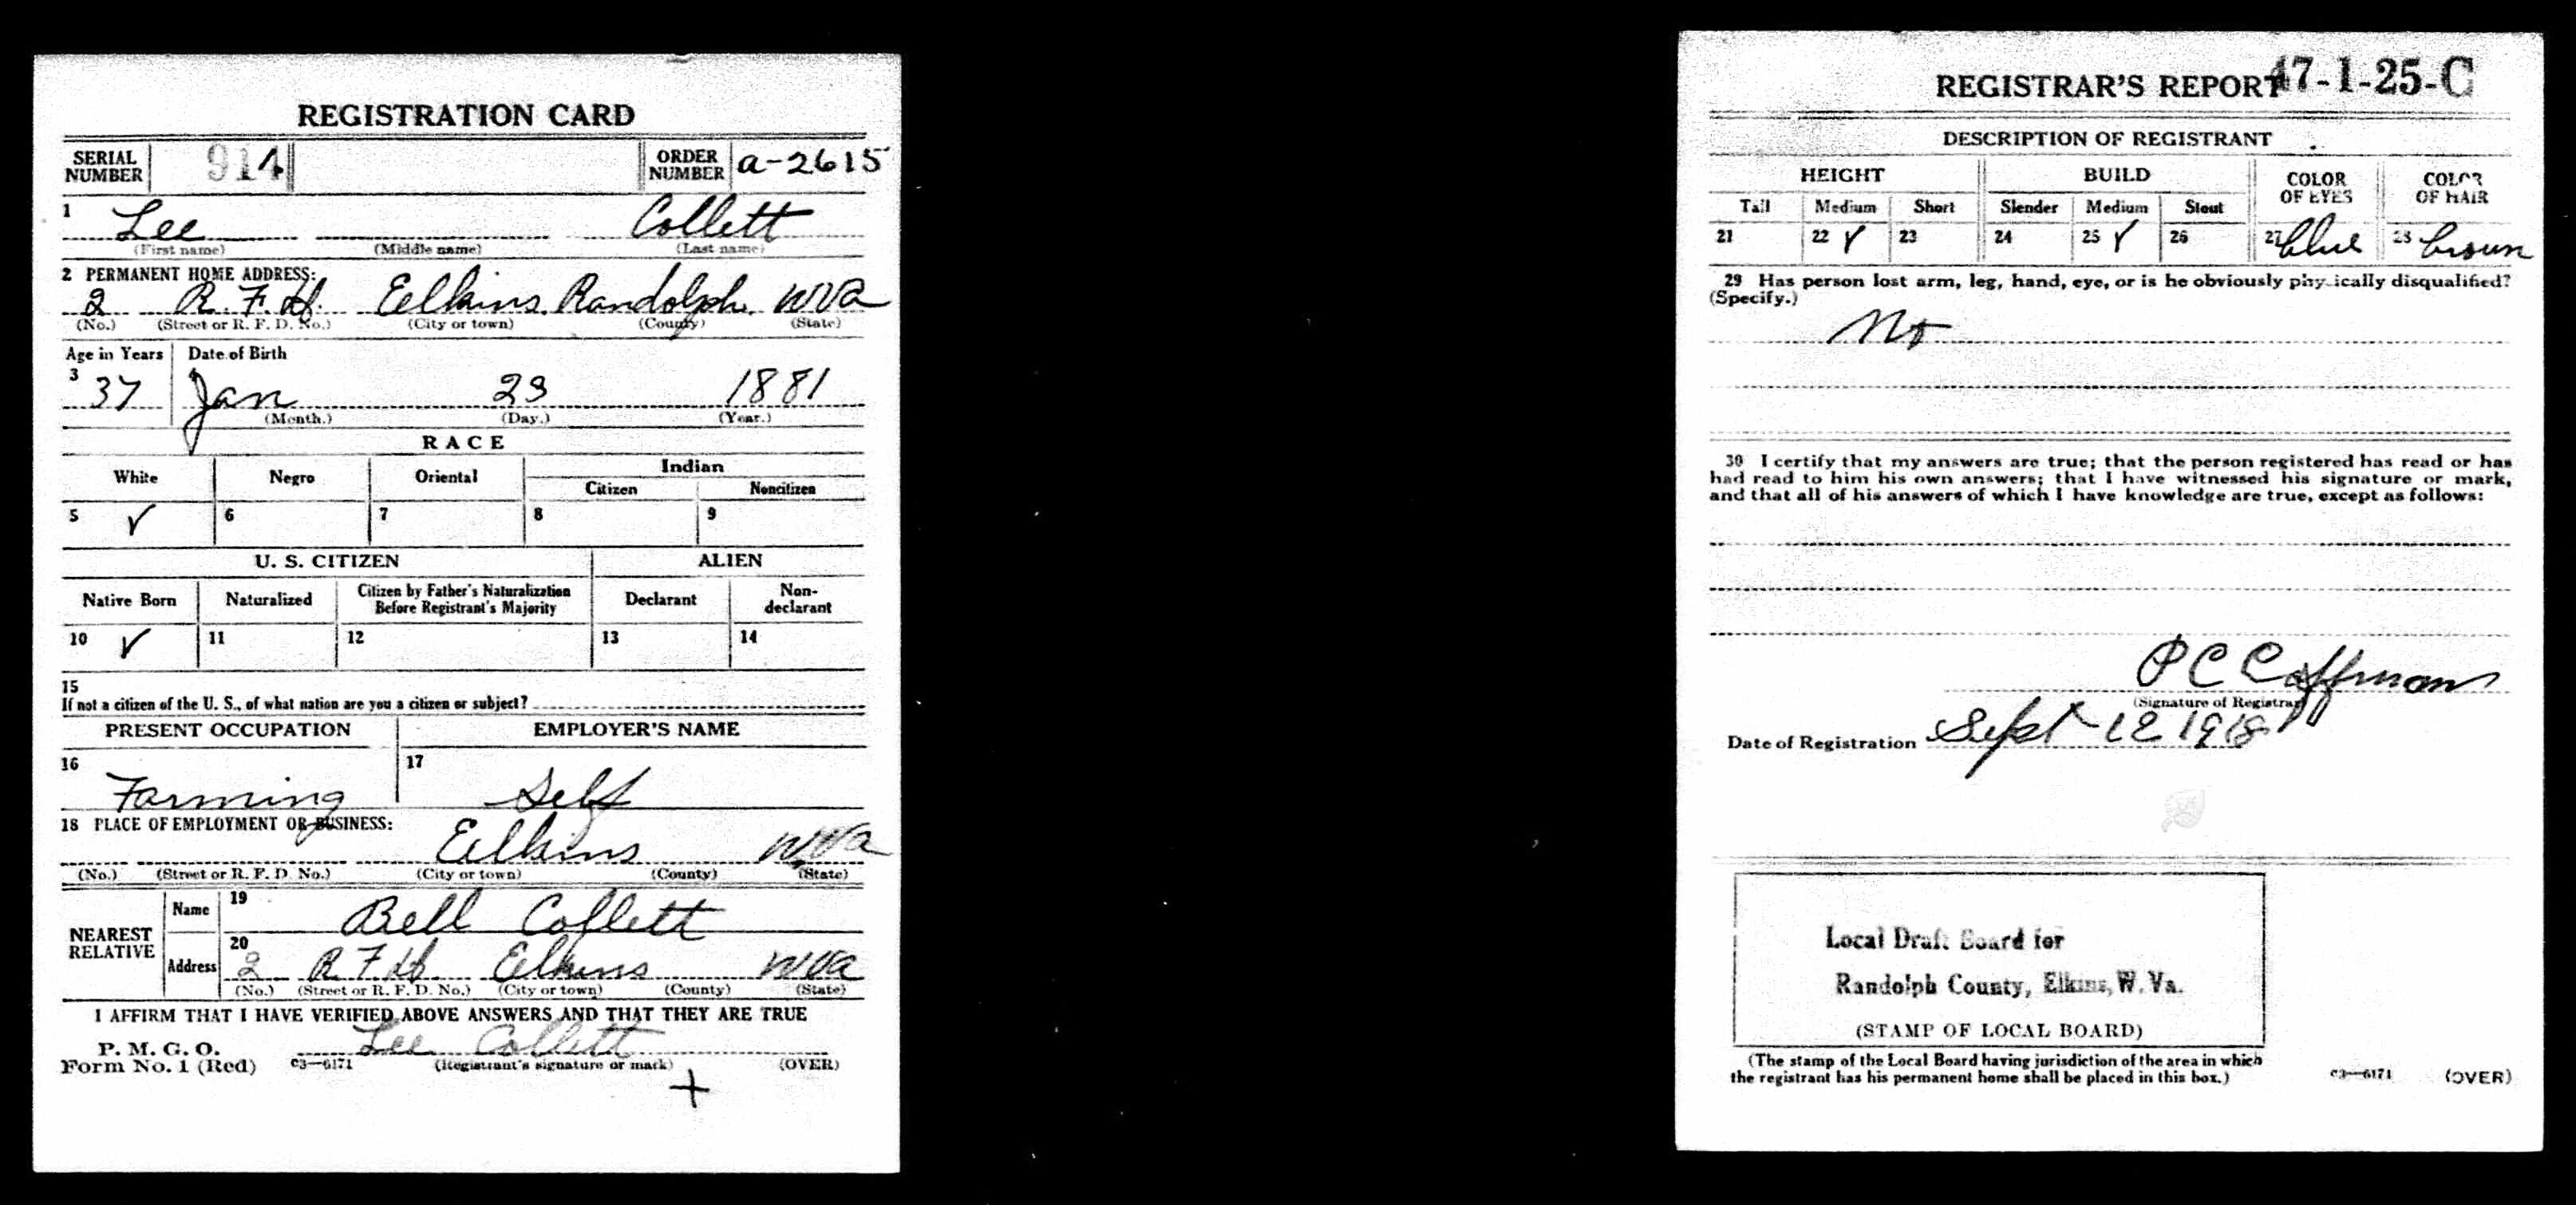 REGISTRATION CARD
SERIAL NUMBER 914 ORDER NUMBER a-2615
1 Lee Collett
(First name) (Middle name) (Last name)
2 PERMANENT HOME ADDRESS:
2 R.F.D. Eelkins Randolph WVa
(No.) (Street or R. F. D. No.) (City or town) (County) (State)
Age in Years Date of Birth
3 37 4 Jan 23 1881
(Month.) (Day.) (Year.)
RACE
White Negro Oriental Indian
Citizen Noncitizen
5 ✓ 6 7 8 9
U. S. CITIZEN ALIEN
Native Born Naturalized Citizen by Father's Naturalization Before Registrant's Majority Declarant Non-declarant
10 ✓ 11 12 13 14
15
If not a citizen of the U. S., of what nation are you a citizen or subject?
PRESENT OCCUPATION EMPLOYER'S NAME
16 Farming 17 Self
18 PLACE OF EMPLOYMENT OR BUSINESS:
Eelkins WVa
(No.) (Street or R. F. D. No.) (City or town) (County) (State)
NEAREST RELATIVE
Name 19 Bell Collett
Address 20 2 RFD Elkins WVa
(No.) (Street or R. F. D. No.) (City or town) (County) (State)
I AFFIRM THAT I HAVE VERIFIED ABOVE ANSWERS AND THAT THEY ARE TRUE
P. M. G. O.
Form No. 1 (Red) C3—6171 Lee Collett
(Registrant's signature or mark) (OVER)
+
REGISTRAR'S REPORT 47-1-25-C
DESCRIPTION OF REGISTRANT
HEIGHT BUILD COLOR OF EYES COLOR OF HAIR
Tall Medium Short Slender Medium Stout
21 22 ✓ 23 24 25 ✓ 26 27 blue 28 brown
29 Has person lost arm, leg, hand, eye, or is he obviously physically disqualified?
(Specify.)
No
30 I certify that my answers are true; that the person registered has read or has
had read to him his own answers; that I have witnessed his signature or mark,
and that all of his answers of which I have knowledge are true, except as follows:
P C Coffman
(Signature of Registrar)
Date of Registration Sept 12 1918
Local Draft Board for
Randolph County, Elkins, W. Va.
(STAMP OF LOCAL BOARD)
(The stamp of the Local Board having jurisdiction of the area in which
the registrant has his permanent home shall be placed in this box.)
C3—6171 (OVER)